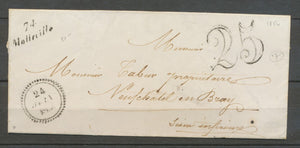 74
Matteville
25
Monsieur
Monsieur Tabur propriétaire
Neufchatel en Bray
Seine inférieure
24